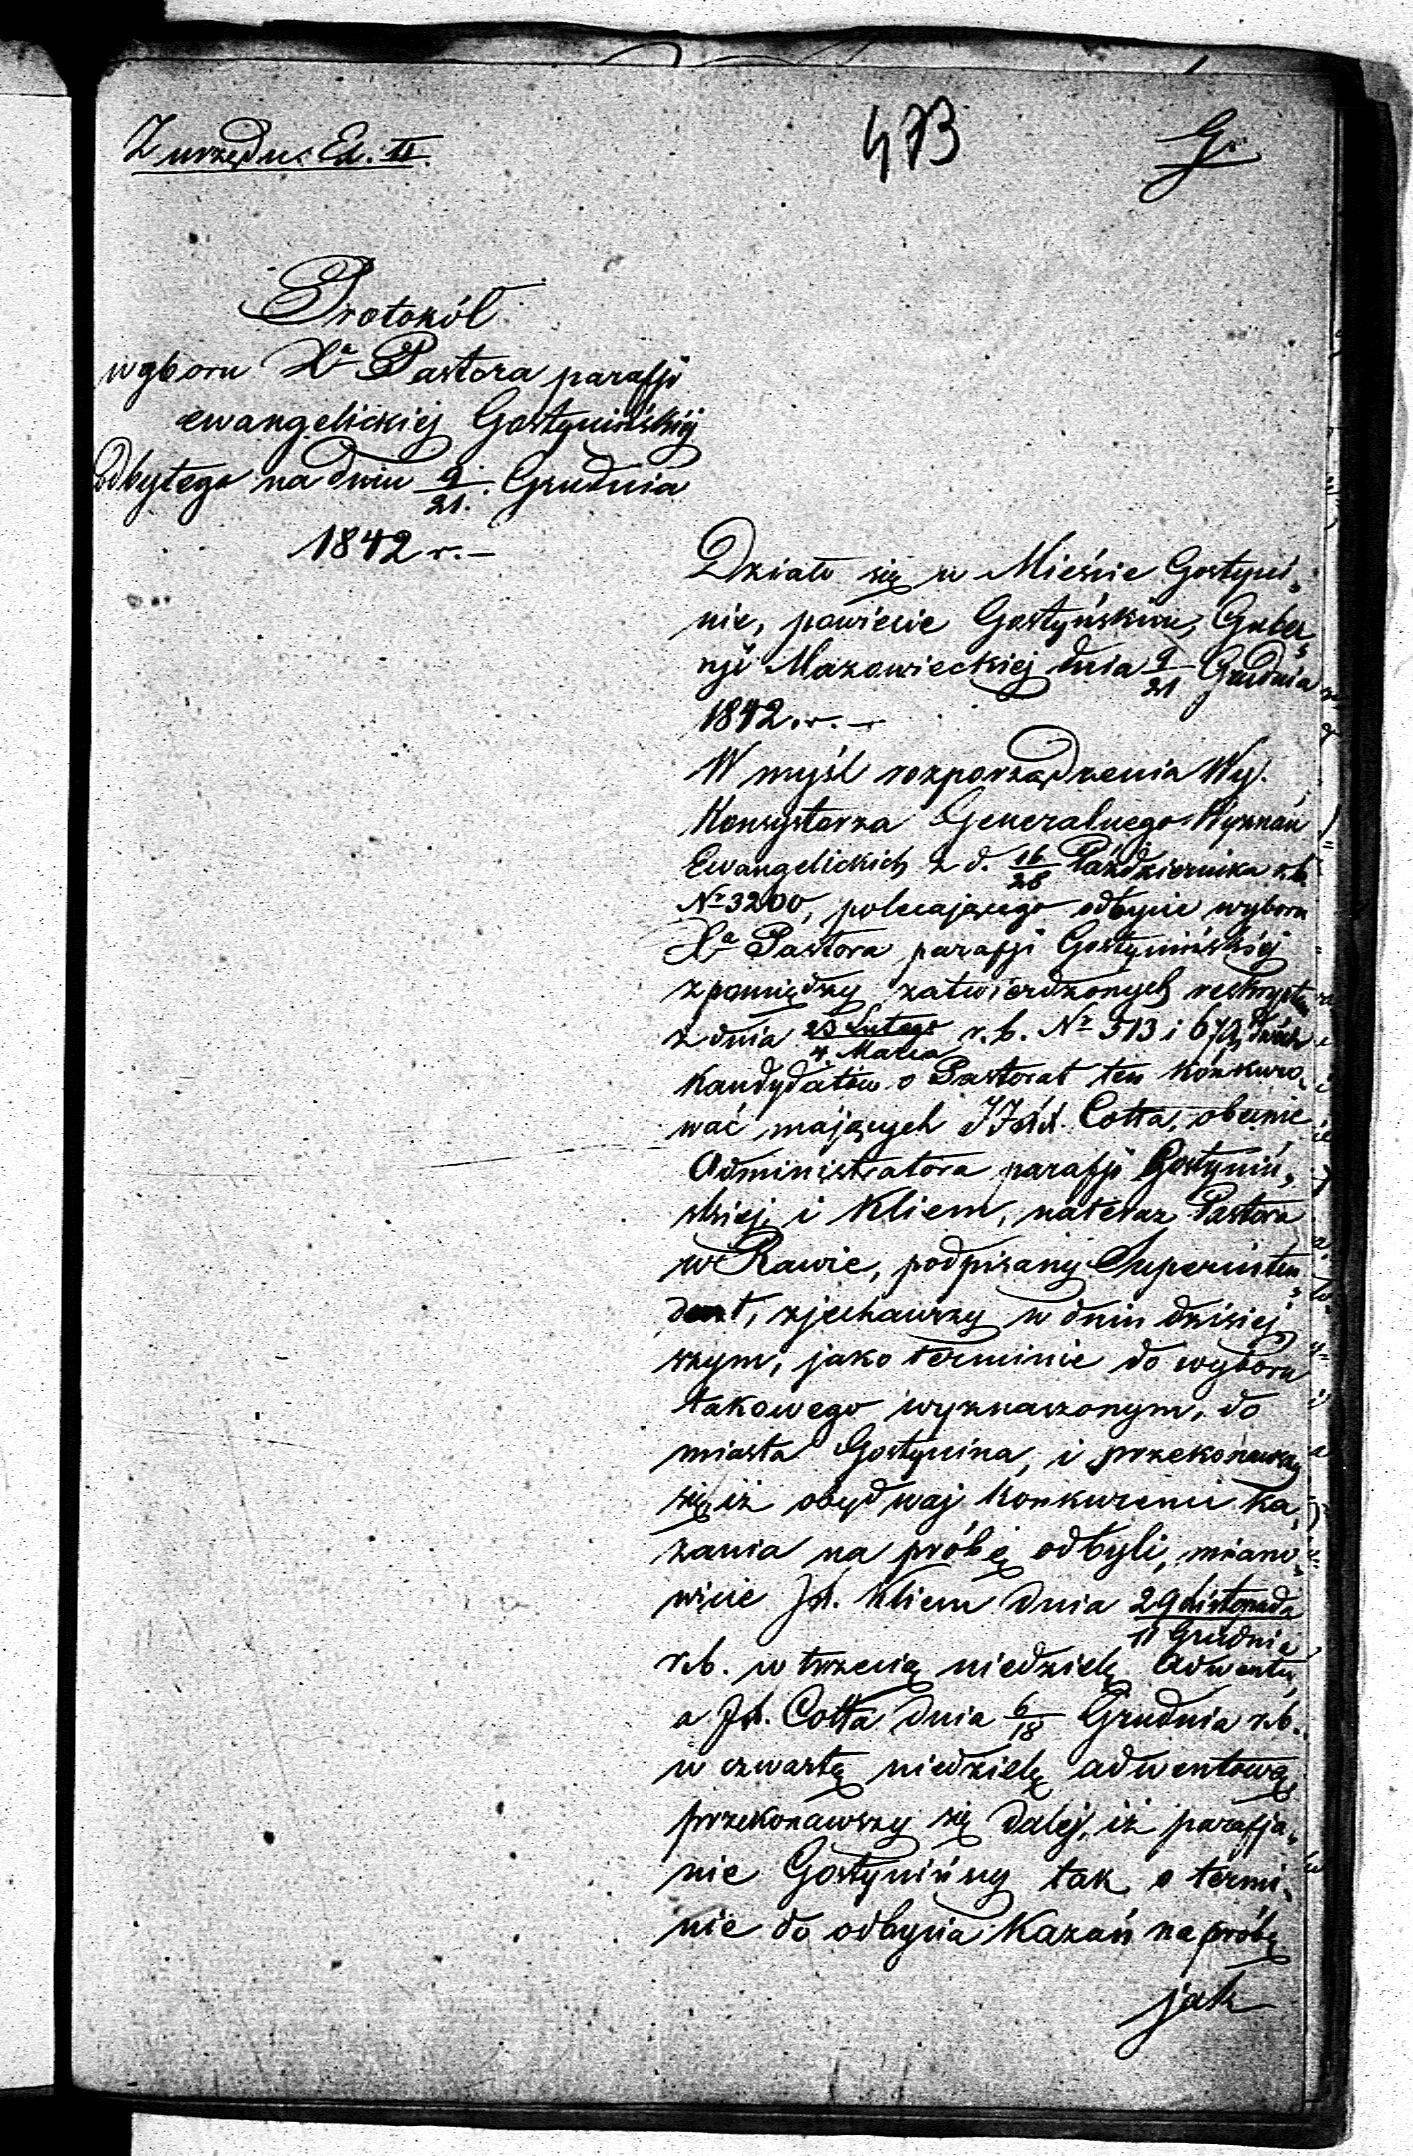 Z urzędu. Ex. II.
473
G.
Protokół
wyboru Xa Pastora parafji
ewangelickiej Gostynińskiej
odbytego na dniu 9/21. Grudnia
1842 r. –
Działo się w Mieście Gostyni-
nie, powiecie Gostyńskim, Guber-
nji Mazowieckiej dnia 9/21 Grudnia
1842 r. –
W myśl rozporządzenia Wy.
Konsystorza Generalnego Wyznań
Ewangelickich z d. 16/28 Października r.b.
Nr 3200, polecającego odbycie wyboru
Xa Pastora parafji Gostynińskiej
z pomiędzy zatwierdzonych reskryptem
z dnia 20 Lutego/4 Marca r.b. Nr 513 i 679, dwóch
Kandydatów o Pastorat ten konkuro-
wać mających JJXX. Cotta, obecnie
Administratora parafji Gostyniń-
skiej i Kliem, nateraz Pastora
w Rawie, podpisany Superinten-
dent, zjechawszy w dniu dzisiej
szym, jako terminie do wyboru
takowego wyznaczonym, do
miasta Gostynina, i przekonawszy
się, iż obydwaj Konkurenci ka-
zania na próbę odbyli, miano-
wicie JX. Kliem dnia 29 Listopada/11 Grudnia
r.b. w trzecią niedzielę Adwentu,
a JX. Cotta dnia 6/18 Grudnia r.b.
w czwartą niedzielę adwentową
przekonawszy się dalej, iż parafja-
nie Gostynińscy tak o termi-
nie do odbycia Kazań na próbę
jak